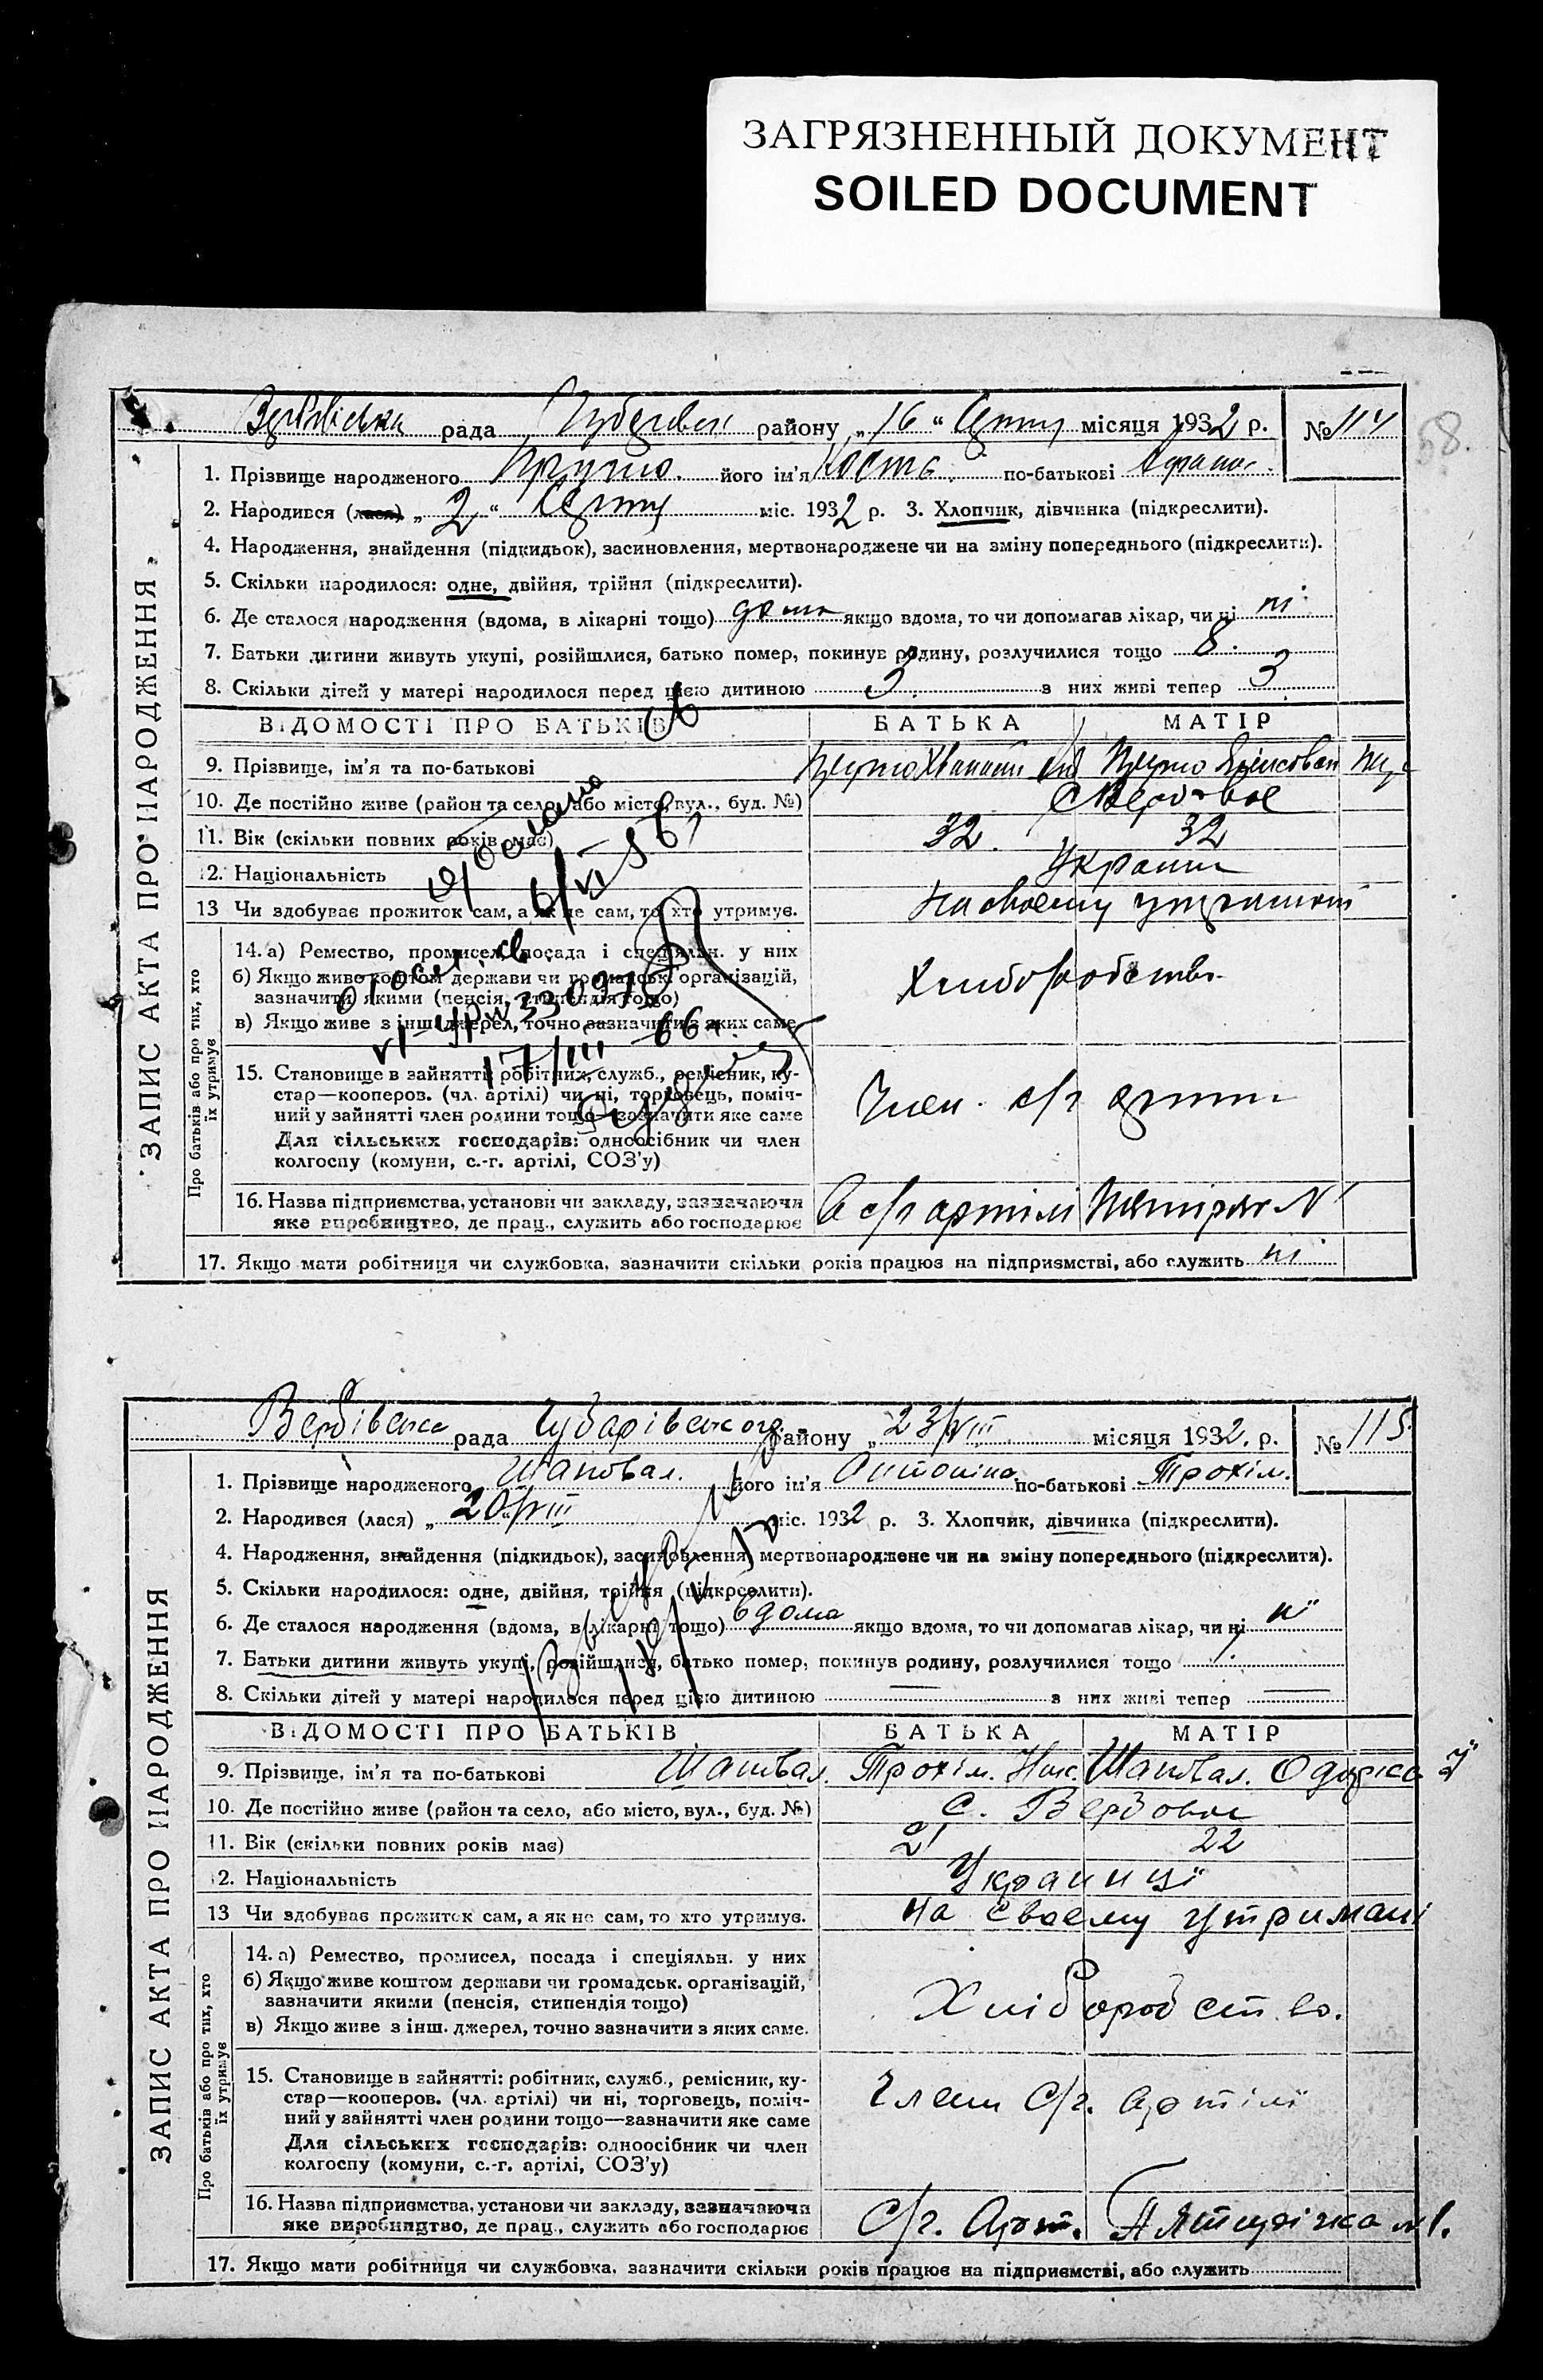 ЗАГРЯЗНЕННЫЙ ДОКУМЕНТ
SOILED DOCUMENT
58.
ЗАПИС АКТА ПРО НАРОДЖЕННЯ
рада району „16“ місяця 1932 р. № 114
1. Прізвище народженого його ім'я Кость по-батькові
2. Народився (лася) „2“ міс. 1932 р. 3. Хлопчик, дівчинка (підкреслити).
4. Народження, знайдення (підкидьок), засиновлення, мертвонароджене чи на зміну попереднього (підкреслити).
5. Скільки народилося: одне, двійня, трійня (підкреслити).
6. Де сталося народження (вдома, в лікарні тощо) дома якщо вдома, то чи допомагав лікар, чи ні ні
7. Батьки дитини живуть укупі, розійшлися, батько помер, покинув родину, розлучилися тощо
8. Скільки дітей у матері народилося перед цією дитиною 3. з них живі тепер 3
ВІДОМОСТІ ПРО БАТЬКІВ БАТЬКА МАТІР
9. Прізвище, ім'я та по-батькові
10. Де постійно живе (район та село, або місто, вул., буд. №) с Вербовое
11. Вік (скільки повних років має) 32. 32
12. Національність
13 Чи здобуває прожиток сам, а як не сам, то хто утримує. На своєму
Про батьків або про тих, хто їх утримує
14. а) Ремество, промисел, посада і спеціяльн. у них
б) Якщо живе коштом держави чи громадськ. організацій,
зазначити якими (пенсія, стипендія тощо)
в) Якщо живе з інш. джерел, точно зазначити з яких саме
Хлиборобство
15. Становище в зайнятті: робітник, служб., ремісник, ку-
стар—кооперов. (чл. артілі) чи ні, торговець, поміч-
ний у зайнятті член родини тощо—зазначити яке саме
Для сільських господарів: одноосібник чи член
колгоспу (комуни, с.-г. артілі, СОЗ'у)
Член с/г артили
16. Назва підприємства, установи чи закладу, зазначаючи
яке виробництво, де прац., служить або господарює
В с/г артілі
17. Якщо мати робітниця чи службовка, зазначити скільки років працює на підприємстві, або служить ні
ЗАПИС АКТА ПРО НАРОДЖЕННЯ
Вербівська рада Чубарівського району „23/VIII місяця 1932. р. № 115
1. Прізвище народженого Шаповал. його ім'я Антоніна по-батькові Трохім.
2. Народився (лася) „20/VIII міс. 1932 р. 3. Хлопчик, дівчинка (підкреслити).
4. Народження, знайдення (підкидьок), засиновлення, мертвонароджене чи на зміну попереднього (підкреслити).
5. Скільки народилося: одне, двійня, трійня (підкреслити).
6. Де сталося народження (вдома, в лікарні тощо) вдома якщо вдома, то чи допомагав лікар, чи ні ні
7. Батьки дитини живуть укупі, розійшлися, батько помер, покинув родину, розлучилися тощо
8. Скільки дітей у матері народилося перед цією дитиною — з них живі тепер —
ВІДОМОСТІ ПРО БАТЬКІВ БАТЬКА МАТІР
9. Прізвище, ім'я та по-батькові Шаповал. Трохім. Ник. Шаповал. Одарка
10. Де постійно живе (район та село, або місто, вул., буд. №) с. Вербовое
11. Вік (скільки повних років має) 21 22
12. Національність Українці
13 Чи здобуває прожиток сам, а як не сам, то хто утримує. на своєму утримані
Про батьків або про тих, хто їх утримує
14. а) Ремество, промисел, посада і спеціяльн. у них
б) Якщо живе коштом держави чи громадськ. організацій,
зазначити якими (пенсія, стипендія тощо)
в) Якщо живе з інш. джерел, точно зазначити з яких саме.
Хліборобство.
15. Становище в зайнятті: робітник, служб., ремісник, ку-
стар—кооперов. (чл. артілі) чи ні, торговець, поміч-
ний у зайнятті член родини тощо—зазначити яке саме
Для сільських господарів: одноосібник чи член
колгоспу (комуни, с.-г. артілі, СОЗ'у)
Член С/г. артілі
16. Назва підприємства, установи чи закладу, зазначаючи
яке виробництво, де прац., служить або господарює
С/г. Арт. Пятирічка №1.
17. Якщо мати робітниця чи службовка, зазначити скільки років працює на підприємстві, або служить